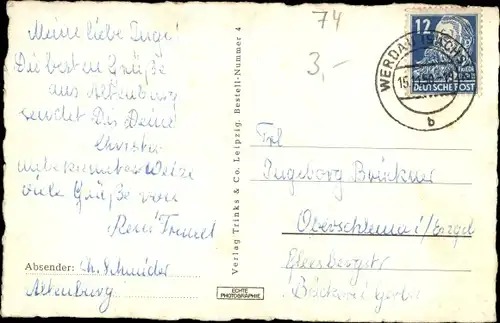 74
3,-
Meine liebe Inge!
Die besten Grüße
aus Altenburg
sendet Dir Deine
Christa
unbekannter Weise
viele Grüße von
Absender: Ch. Schnüder
Altenburg
Verlag Trinks & Co. Leipzig. Bestell-Nummer 4
ECHTE
PHOTOGRAPHIE
12
DEUTSCHE POST
WERDAU (SACHS)
b
Frl
Ingeborg Brückner
Oberschlema i/Erzgeb
Bäckerei